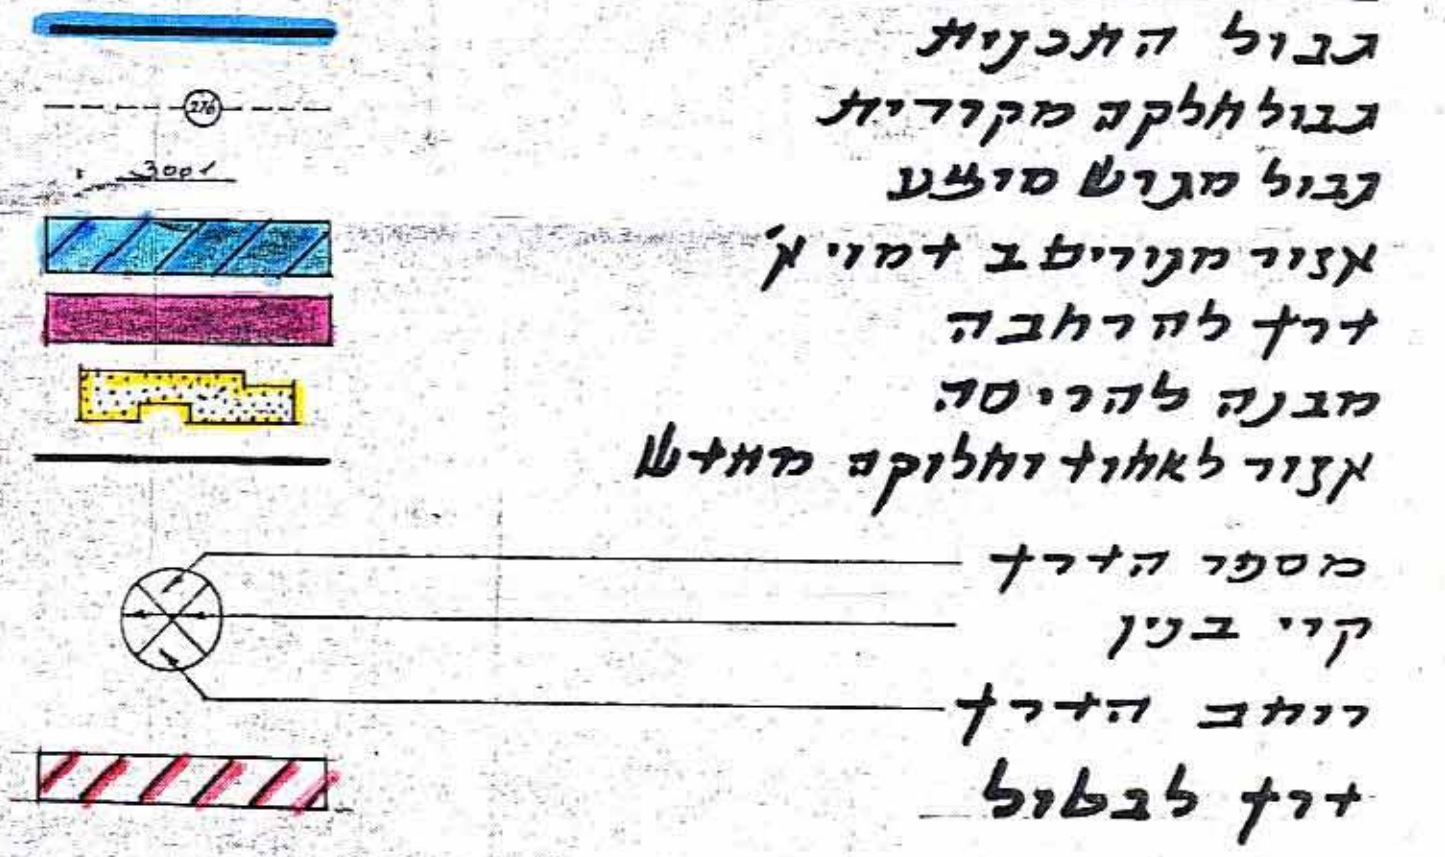 גבול התכנית
גבול חלקה מקורית 276
גבול מגרש מוצע 3001
אזור מגורים ב דמוי א'
דרך להרחבה
מבנה להריסה
אזור לאחוד וחלוקה מחדש
מספר הדרך
קוי בנין
רוחב הדרך
דרך לבטול